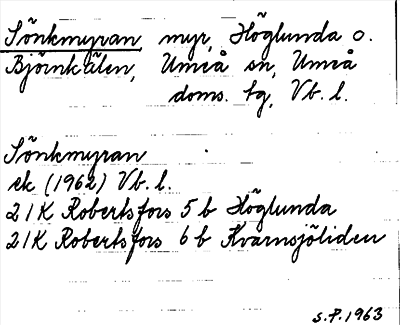 Sönkmyran myr, Höglunda o.
Björnkälen, Umeå sn, Umeå
doms. tg, Vb. l.
Sönkmyran
ek (1962) Vb. l.
21K Robertsfors 5b Höglunda
21K Robertsfors 6b Kvarnsjöliden
S.P. 1963